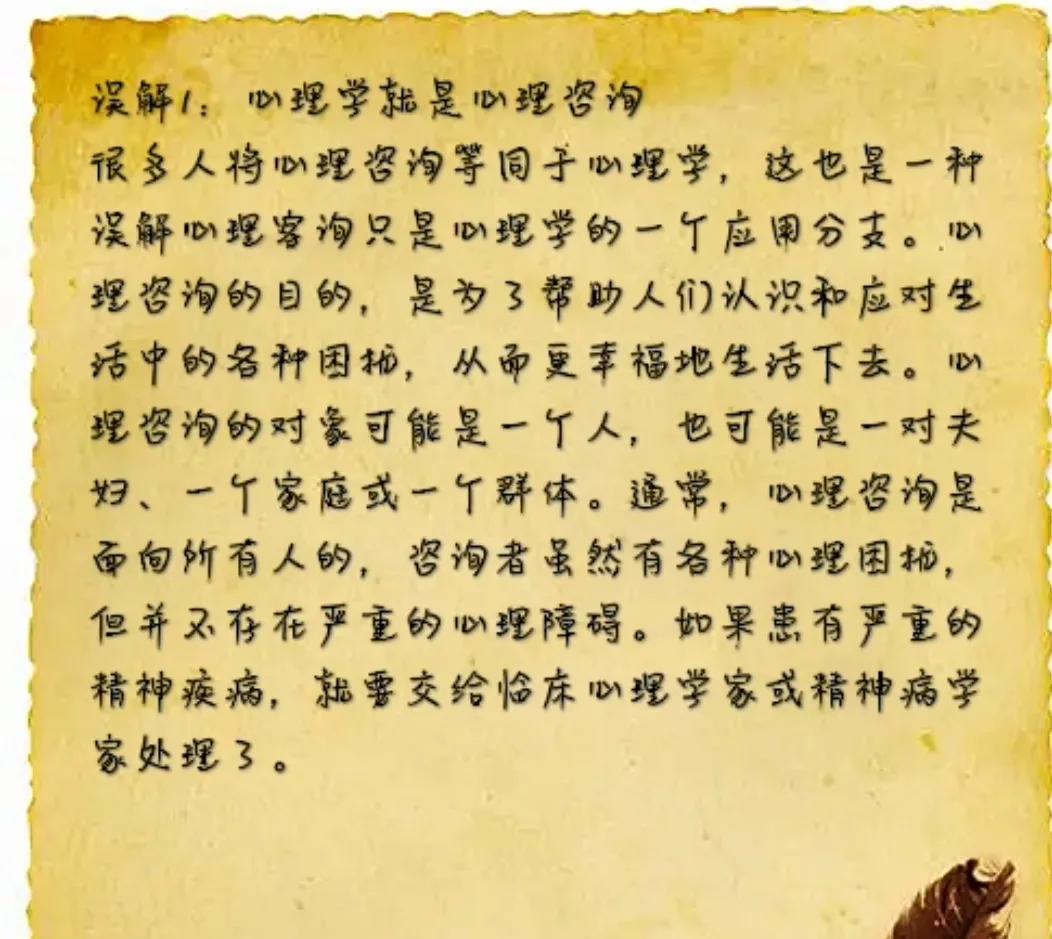 误解1：心理学就是心理咨询
很多人将心理咨询等同于心理学，这也是一种
误解心理客询只是心理学的一个应用分支。心
理咨询的目的，是为了帮助人们认识和应对生
活中的各种困扰，从而更幸福地生活下去。心
理咨询的对象可能是一个人，也可能是一对夫
妇、一个家庭或一个群体。通常，心理咨询是
面向所有人的，咨询者虽然有各种心理困扰，
但并不存在严重的心理障碍。如果患有严重的
精神疾病，就要交给临床心理学家或精神病学
家处理了。